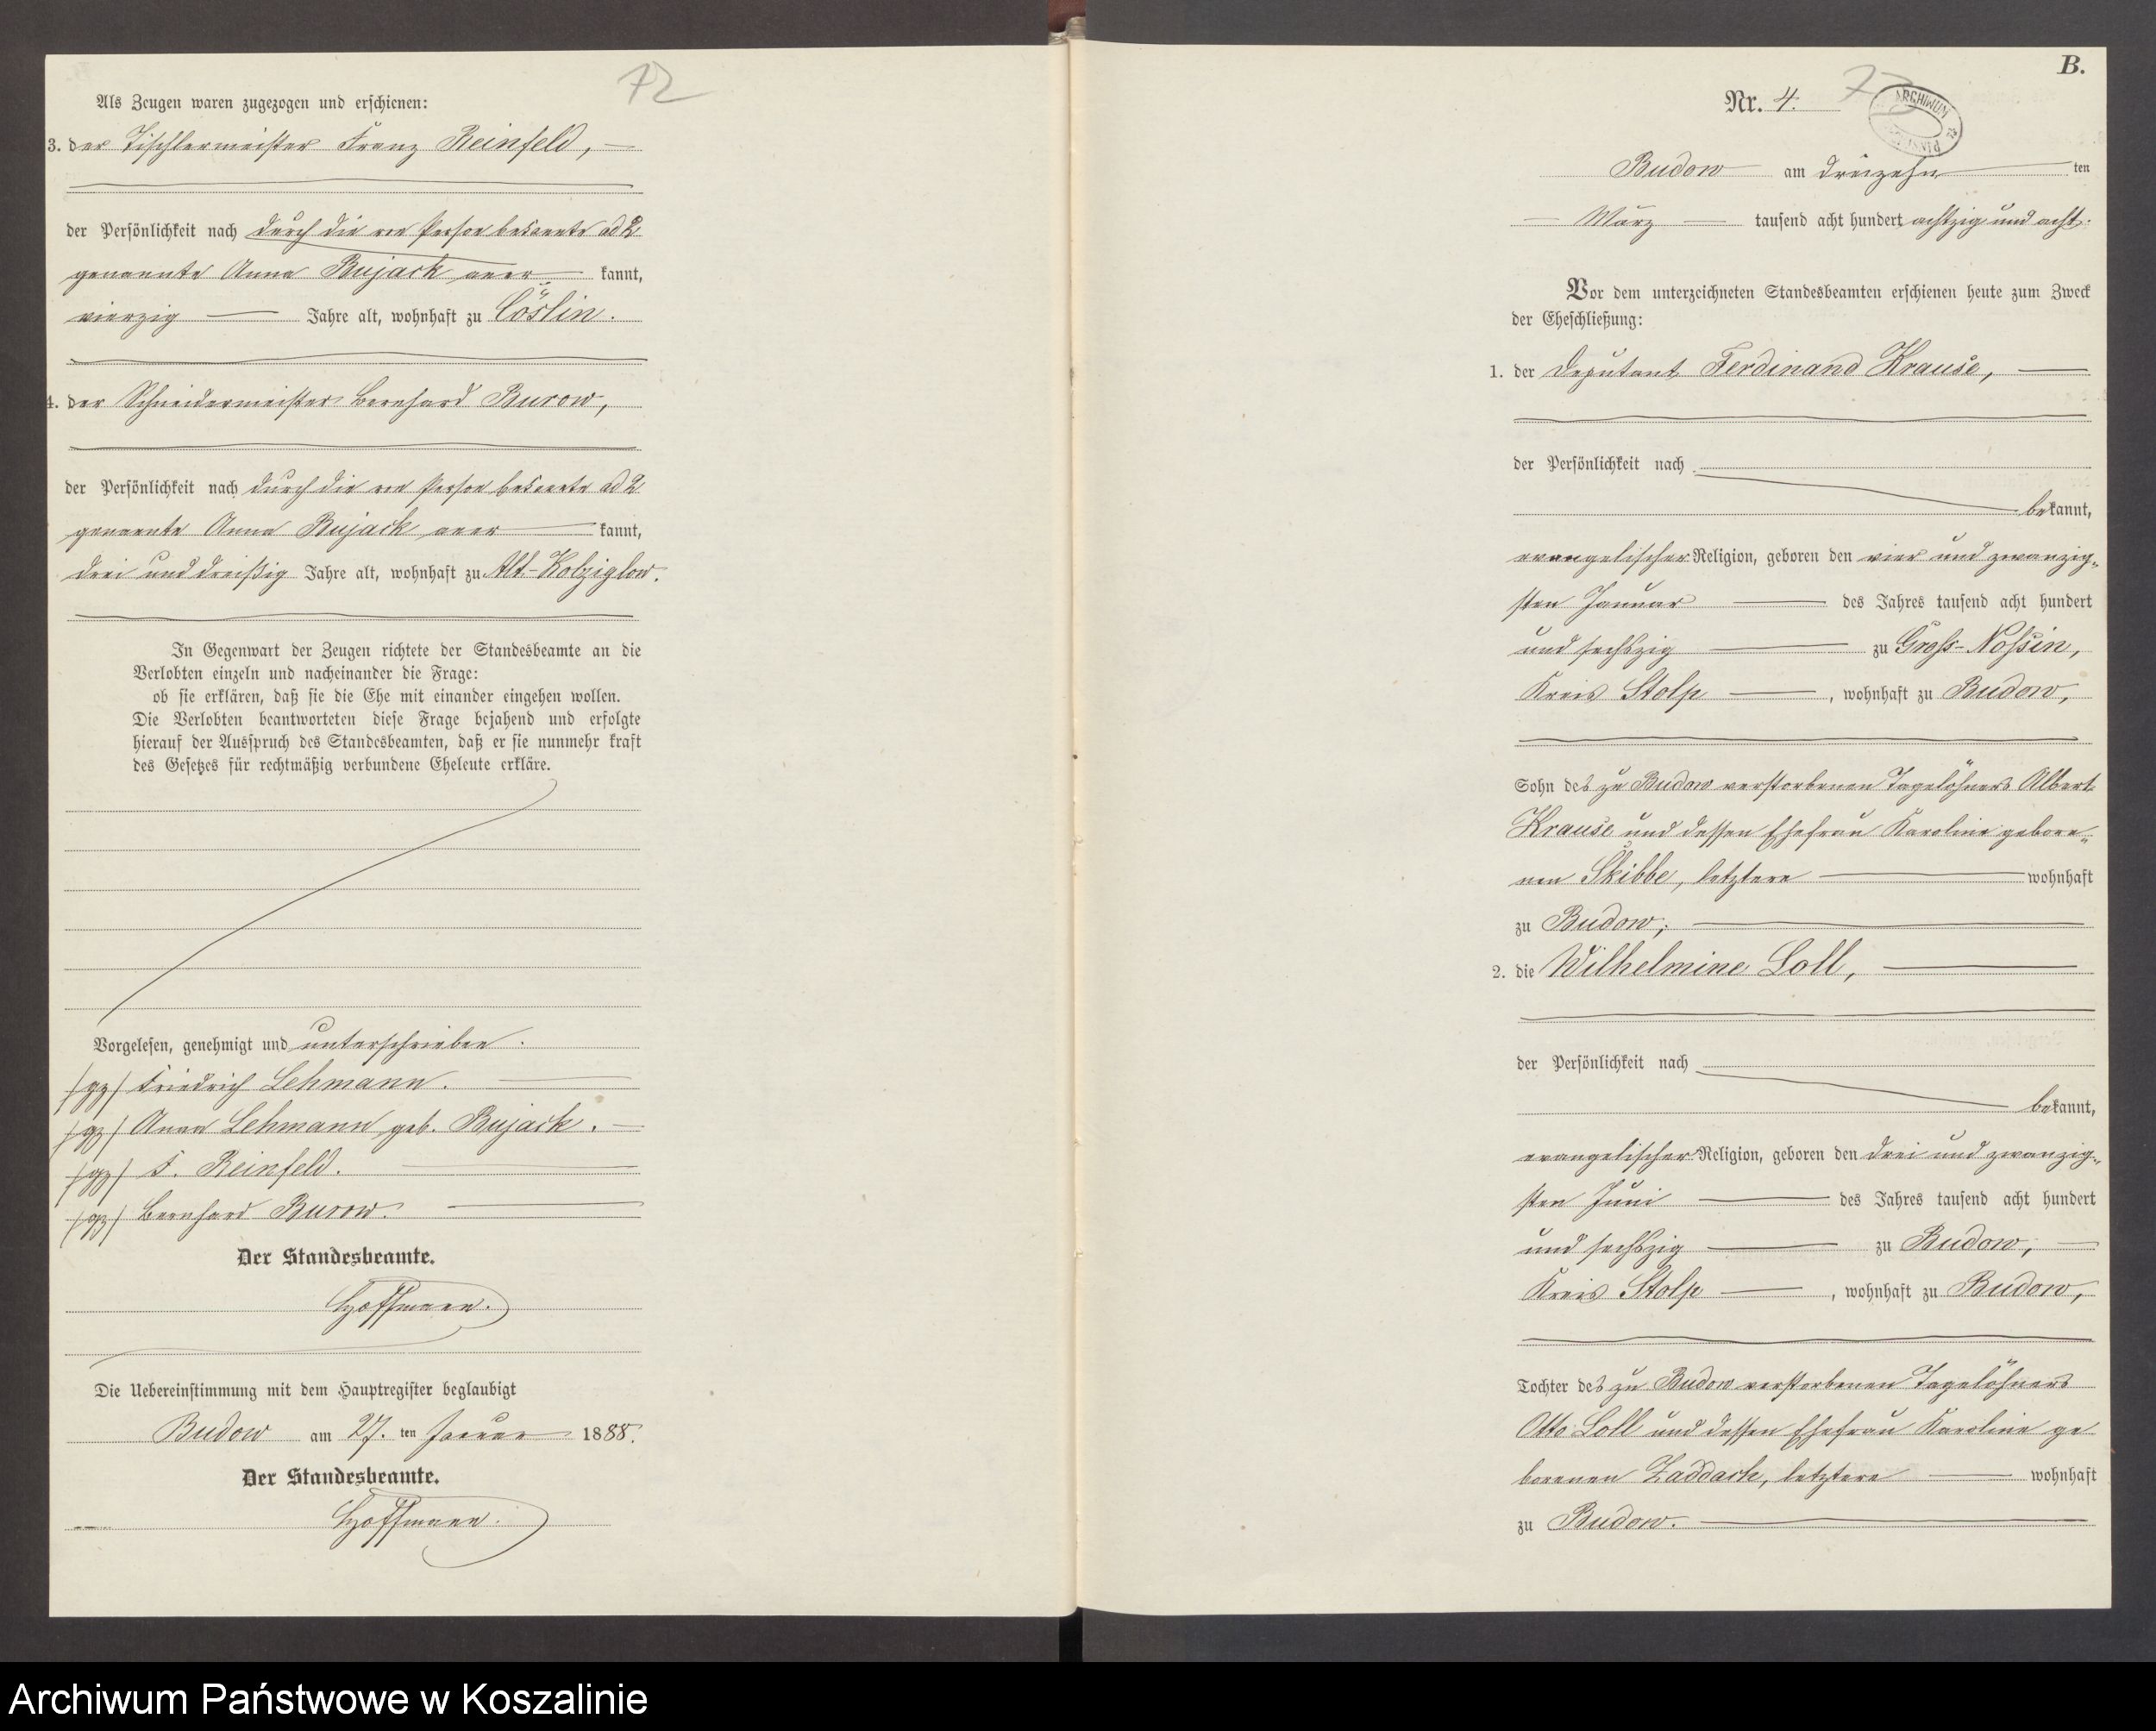 72
Als Zeugen waren zugezogen und erschienen:
3. der Tischlermeister Franz Reinfeld,
der Persönlichkeit nach durch die von Person bekannte ad 2
genannte Anna Bujack aner kannt,
vierzig Jahre alt, wohnhaft zu Cöslin.
4. der Schneidermeister Bernhard Burow,
der Persönlichkeit nach durch die von Person bekannte ad 2
genannte Anna Bujack aner kannt,
drei und dreißig Jahre alt, wohnhaft zu Alt-Kolziglow.
In Gegenwart der Zeugen richtete der Standesbeamte an die
Verlobten einzeln und nacheinander die Frage:
ob sie erklären, daß sie die Ehe mit einander eingehen wollen.
Die Verlobten beantworteten diese Frage bejahend und erfolgte
hierauf der Ausspruch des Standesbeamten, daß er sie nunmehr kraft
des Gesetzes für rechtmäßig verbundene Eheleute erkläre.
Vorgelesen, genehmigt und unterschrieben.
/gz/ Friedrich Lehmann.
/gz/ Anna Lehmann geb. Bujack.
/gz/ F. Reinfeld.
/gz/ Bernhard Burow.
Der Standesbeamte.
Hoffmann.
Die Uebereinstimmung mit dem Hauptregister beglaubigt
Budow am 27. ten Januar 1888.
Der Standesbeamte.
Hoffmann.
B.
Nr. 4. 73
ARCHIWUM
Budow am dreizehn ten
März tausend acht hundert achtzig und acht.
Vor dem unterzeichneten Standesbeamten erschienen heute zum Zweck
der Eheschließung:
1. der Deputant Ferdinand Krause,
der Persönlichkeit nach
bekannt,
evangelischer Religion, geboren den vier und zwanzig-
sten Januar des Jahres tausend acht hundert
und sechszig zu Gross-Nossin,
Kreis Stolp, wohnhaft zu Budow,
Sohn des zu Budow verstorbenen Tagelöhners Albert
Krause und dessen Ehefrau Karoline gebore-
nen Skibbe, letztere wohnhaft
zu Budow;
2. die Wilhelmine Loll,
der Persönlichkeit nach
bekannt,
evangelischer Religion, geboren den drei und zwanzig-
sten Juni des Jahres tausend acht hundert
und sechszig zu Budow,
Kreis Stolp, wohnhaft zu Budow,
Tochter des zu Budow verstorbenen Tagelöhners
Otto Loll und dessen Ehefrau Karoline ge
borenen Zaddach, letztere wohnhaft
zu Budow.
Archiwum Państwowe w Koszalinie